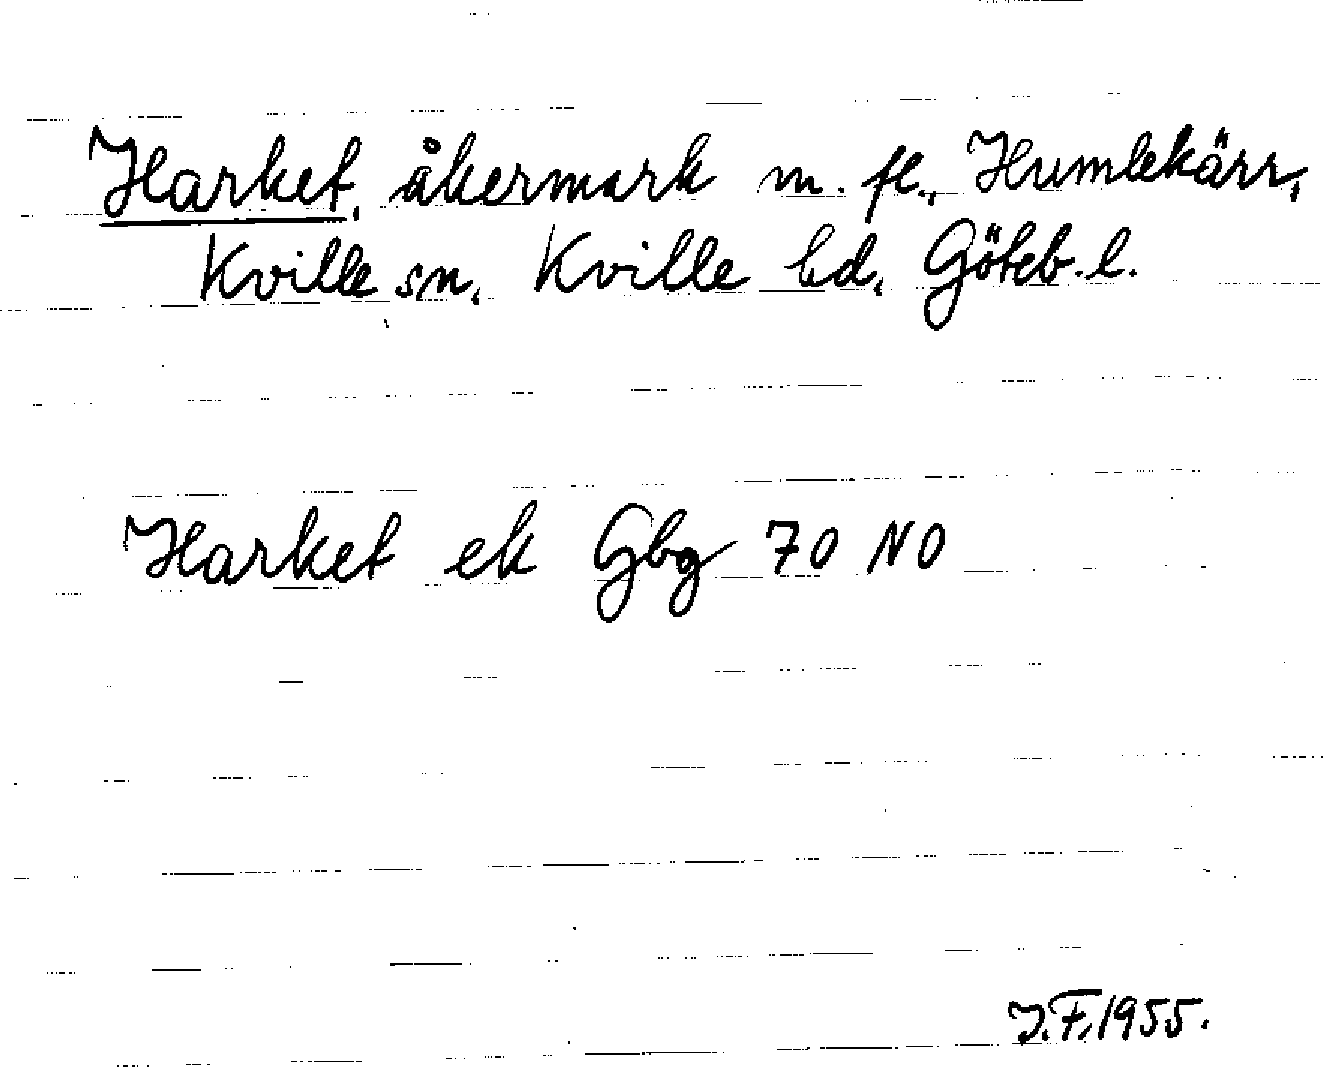 Harket, åkermark m. fl., Humlekärr,
Kville sn, Kville hd, Göteb. l.
Harket ek Gbg 70 NO
J.F. 1955.